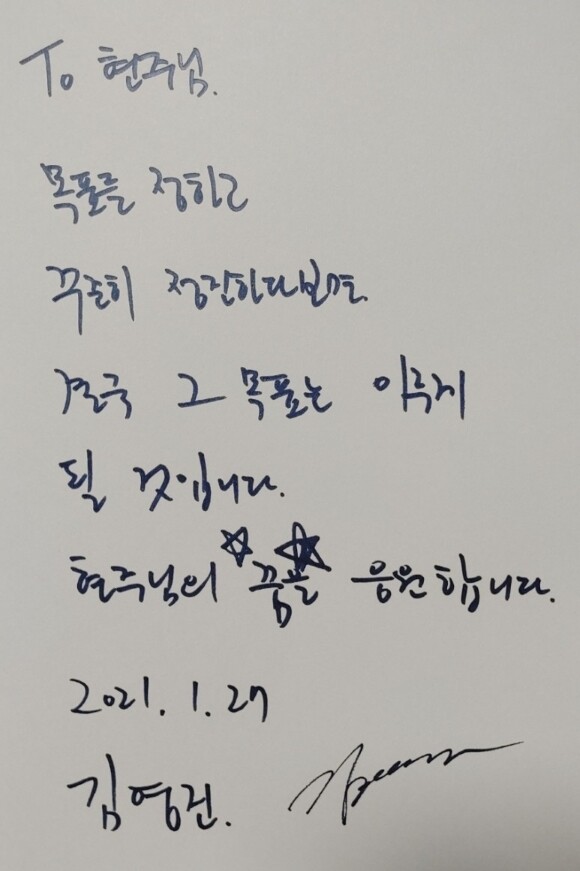 To 현주님.
목표를 정하고
꾸준히 정진하다보면.
결국 그 목표는 이루게
될 것입니다.
현주님의 꿈을 응원합니다.
2021. 1. 27
김영권.